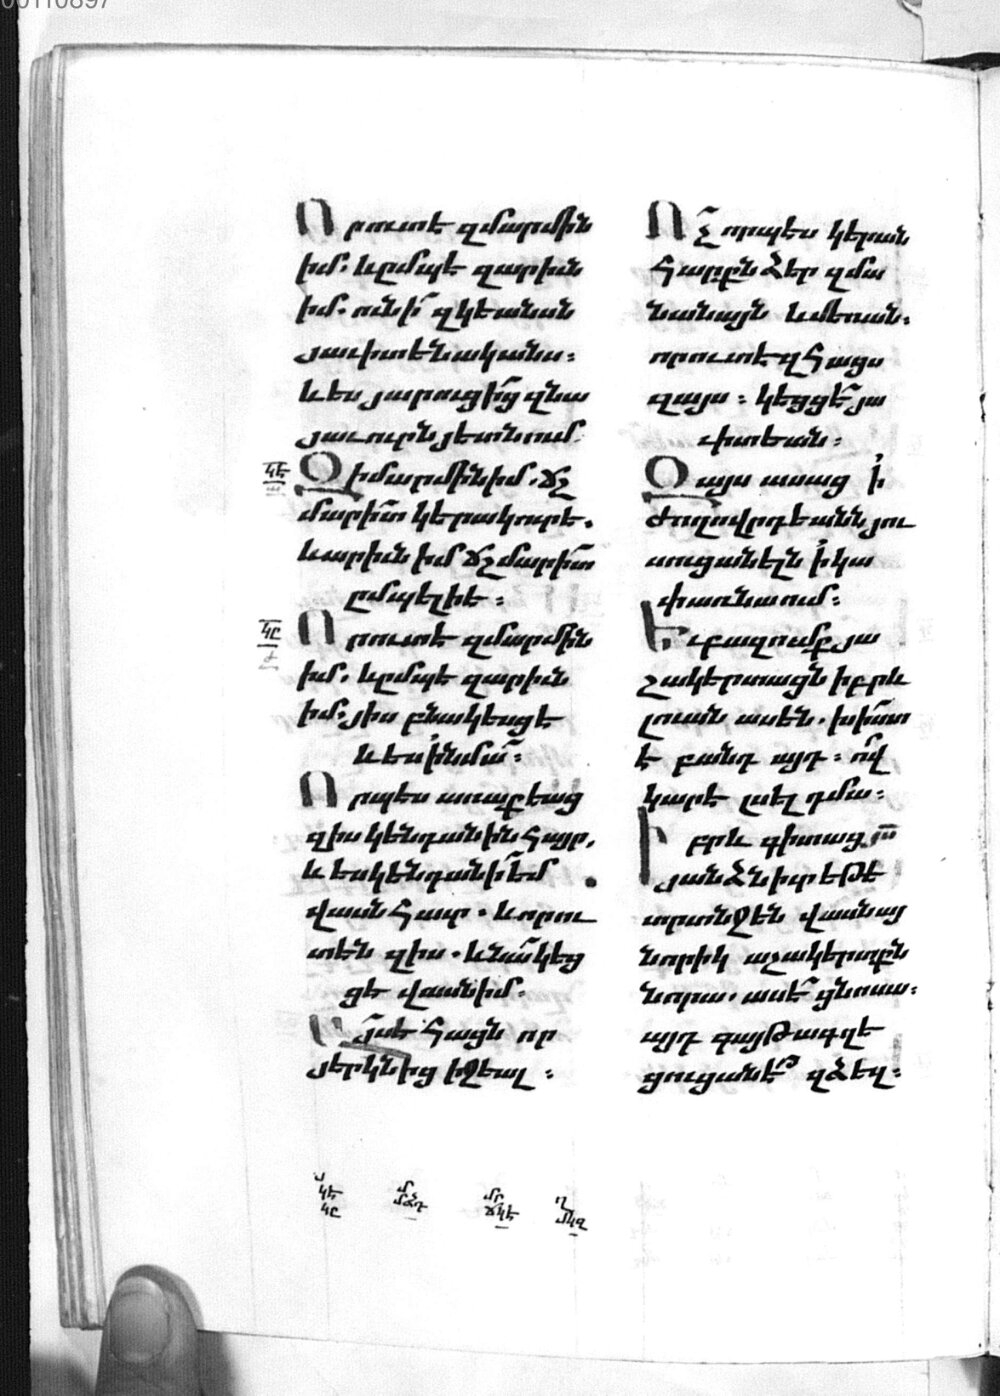 00110897
Որ ուտէ զմարմին
իմ. և ըմպէ զարիւն
իմ. ունի զկեանսն
յաւիտենականս:
և ես յարուցից զնա
յաւուրն յետնում
կե
Զի մարմին իմ. ճշ
մարիտ կերակուր է.
և արիւն իմ ճշմարիտ
ըմպելի է:
կը
Որ ուտէ զմարմին
իմ. և ըմպէ զարիւն
իմ. յիս բնակեսցէ
և ես ի նմա:
Որպես առաքեաց
զիս կենդանին հայր.
և ես կենդանի եմ
վասն հաւր. և որ ու
տէն զիս. և նա կեց
ցե վասն իմ.
Այս է հացն որ
յերկնից իջեալ:
Ոչ որպես կերան
հարքն ձեր զմա
նանայն և մեռան:
որ ուտէ զհացս
զայս: կեցցէ յա
ւիտեան:
Զայս ասաց ի
ժողովրդեանն յու
սուցանելն ի կա
փառնաում:
Եւ բազումք յա
շակերտացն իբրև
լուան ասեն. խիստ
է բանդ այդ: ով
կարէ լսել դմա:
Իբրև գիտաց յս
յանձն իւր եթէ
տրտնջեն վասն այ
նորիկ աշակերտքն
նորա. ասէ ցնոսա:
այդ գայթագղե
ցուցանէ զձեզ: